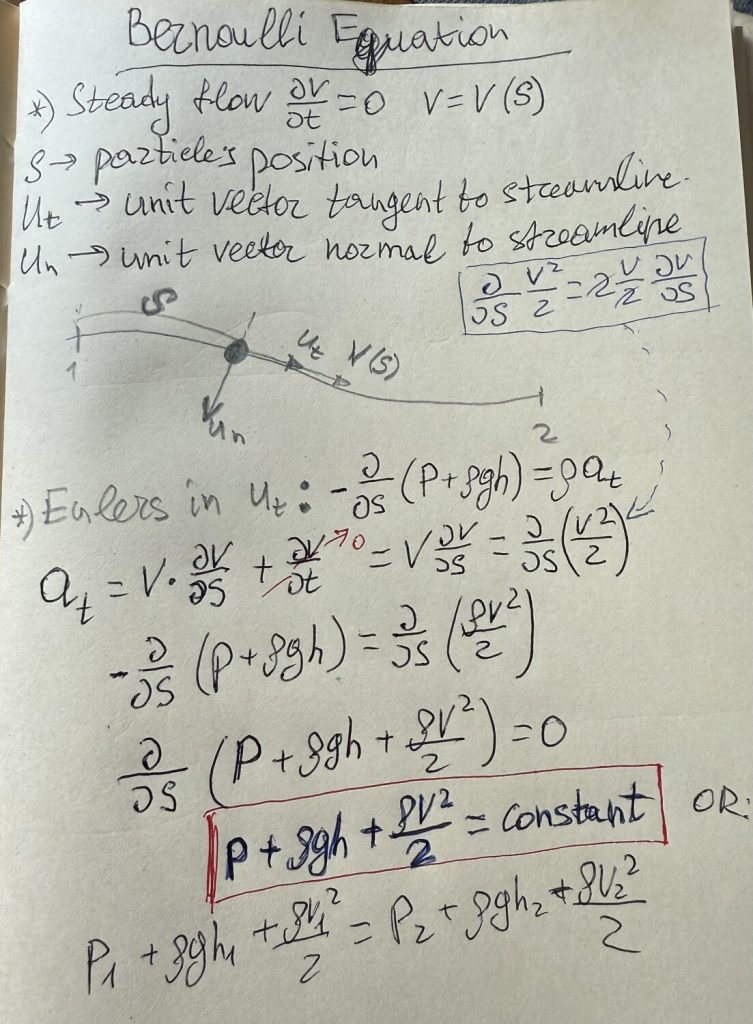 Bernoulli Equation
*) Steady flow ∂V/∂t = 0 V = V(S)
S → particle's position
Ut → unit vector tangent to streamline.
Un → unit vector normal to streamline
∂/∂S V²/2 = 2 V/2 ∂V/∂S
S
1
Ut V(S)
Un
2
*) Eulers in Ut : -∂/∂S (P+ρgh) = ρat
at = V·∂V/∂S + ∂V/∂t → 0 = V ∂V/∂S = ∂/∂S (V²/2)
-∂/∂S (P+ρgh) = ∂/∂S (ρV²/2)
∂/∂S (P + ρgh + ρV²/2) = 0
P + ρgh + ρV²/2 = constant OR:
P1 + ρgh1 + ρV1²/2 = P2 + ρgh2 + ρV2²/2